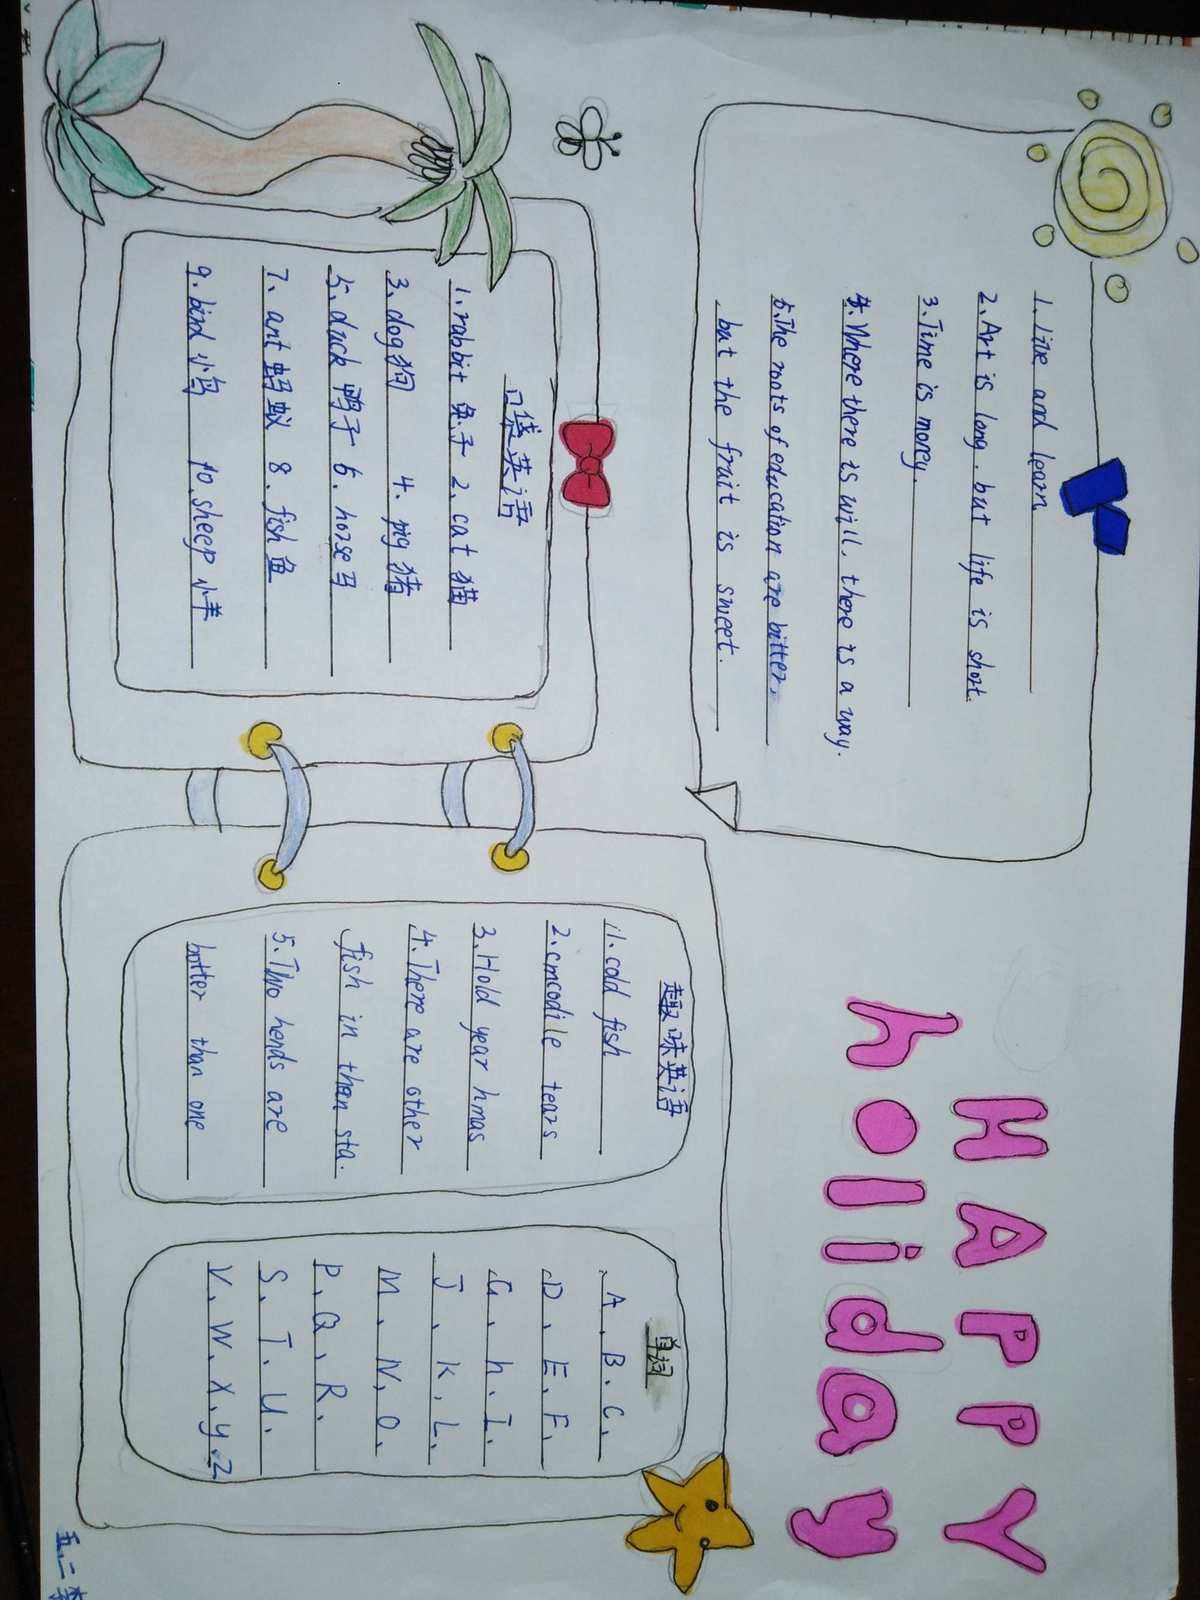 HAPPY
holiday
1. Live and learn
2. Art is long. but life is short.
3. Time is money.
4. Where there is will, there is a way.
5. The roots of education are bitter,
but the fruit is sweet.
口袋英语
1. rabbit 兔子 2. cat 猫
3. dog 狗 4. pig 猪
5. duck 鸭子 6. horse 马
7. ant 蚂蚁 8. fish 鱼
9. bird 小鸟 10. sheep 小羊
趣味英语
1. cold fish
2. cmcodile tears
3. Hold year hmas
4. There are other
fish in than sta.
5. Two hends are
botter than one
单词
A、B、C、
D、E、F、
G、h、I、
J、K、L、
M、N、O、
P、Q、R、
S、T、U、
V、W、X、y、Z
五、二 李